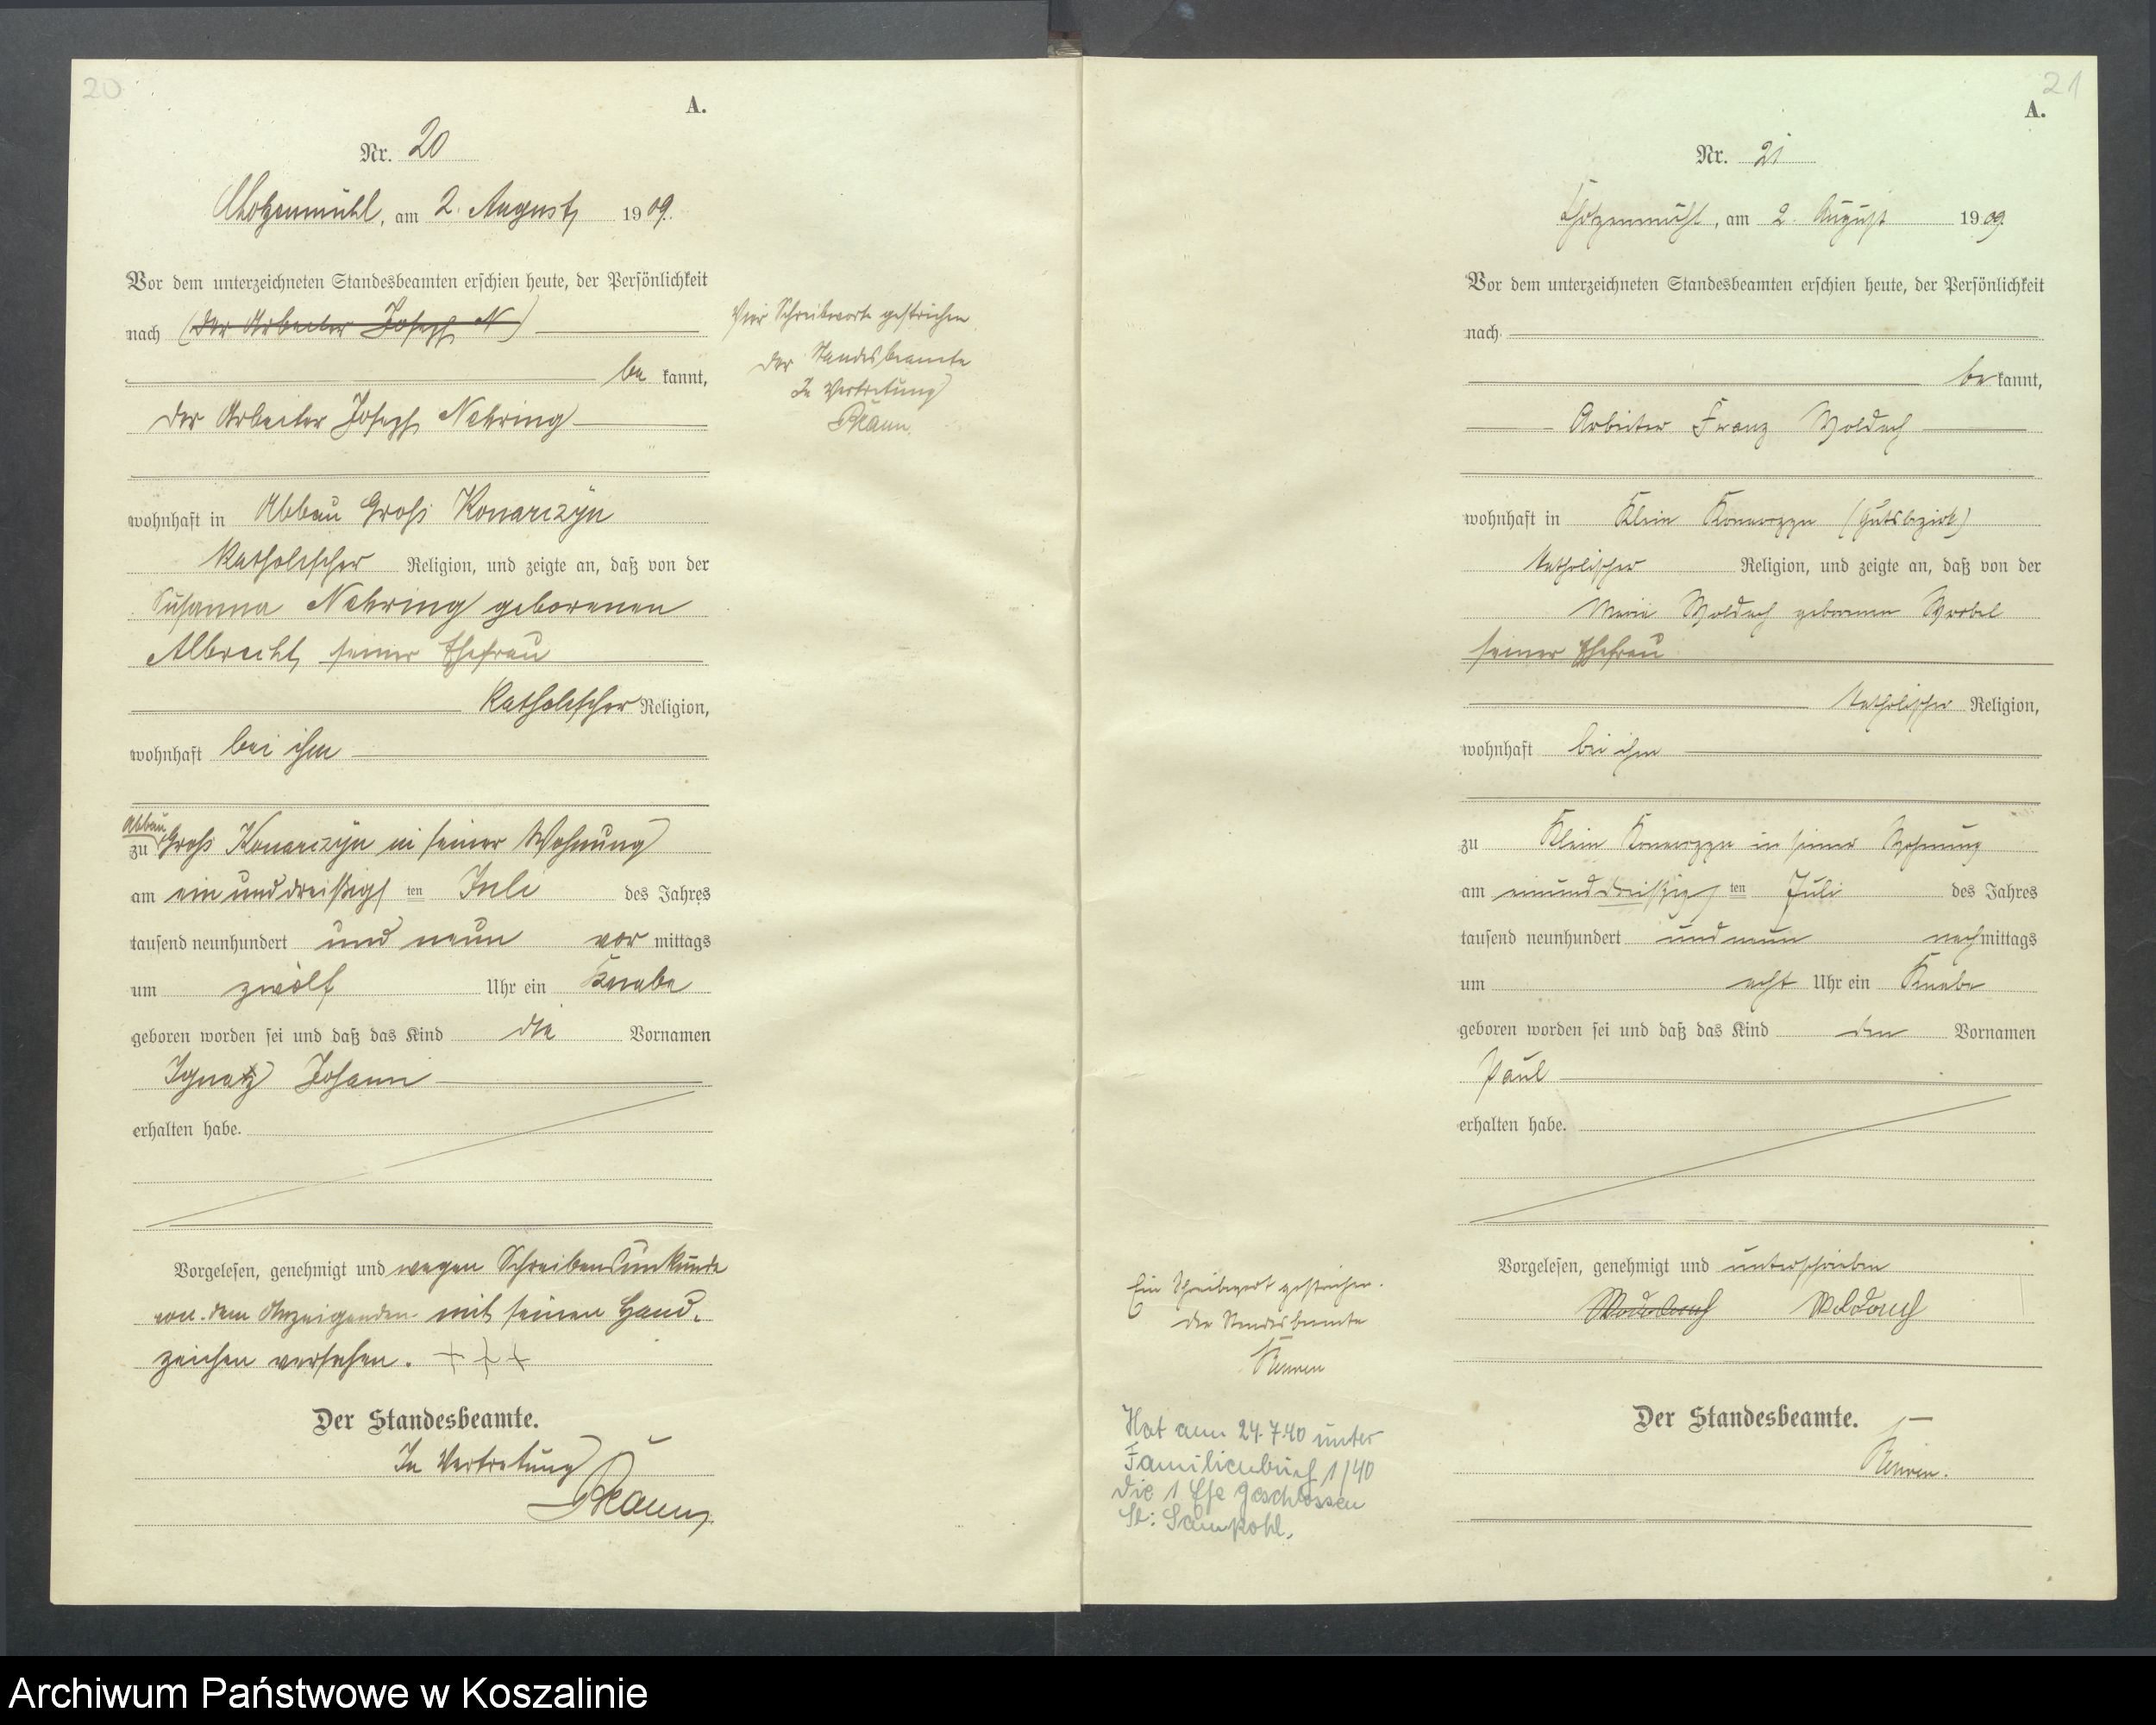 20
A.
Nr. 20
Chotzenmühl, am 2. August 1909.
Vor dem unterzeichneten Standesbeamten erschien heute, der Persönlichkeit
nach (der Arbeiter Joseph N)
be kannt,
der Arbeiter Joseph Nehring
wohnhaft in Abbau Groß Konarczyn
katholischer Religion, und zeigte an, daß von der
Susanna Nehring geborenen
Albrecht, seiner Ehefrau
katholischer Religion,
wohnhaft bei ihm
Abbau
zu Groß Konarczyn in seiner Wohnung
am ein und dreißigsten Juli des Jahres
tausend neunhundert und neun vor mittags
um zwölf Uhr ein Knabe
geboren worden sei und daß das Kind die Vornamen
Ignatz Johann
erhalten habe.
Vorgelesen, genehmigt und wegen Schreibensunkunde
von dem Anzeigenden mit seinen Hand-
zeichen versehen. +++
Der Standesbeamte.
In Vertretung
Vier Schreibworte gestrichen
Der Standesbeamte
In Vertretung
21
A.
Nr. 21
Chotzenmühl, am 2. August 1909.
Vor dem unterzeichneten Standesbeamten erschien heute, der Persönlichkeit
nach
be kannt,
Arbeiter Franz Woldach
wohnhaft in Klein Konarczyn (Gutsbezirk)
katholischer Religion, und zeigte an, daß von der
Maria Woldach geborenen Wrobel
seiner Ehefrau
katholischer Religion,
wohnhaft bei ihm
zu Klein Konarczyn in seiner Wohnung
am einunddreißigsten Juli des Jahres
tausend neunhundert und neun nachmittags
um acht Uhr ein Knabe
geboren worden sei und daß das Kind den Vornamen
Paul
erhalten habe.
Vorgelesen, genehmigt und unterschrieben
Der Standesbeamte.
Ein Schreibwort gestrichen.
Der Standesbeamte
Hat am 24.7.40 unter
Familienbuch 1/40
die 1 Ehe geschlossen
St: Sampohl.
Archiwum Państwowe w Koszalinie